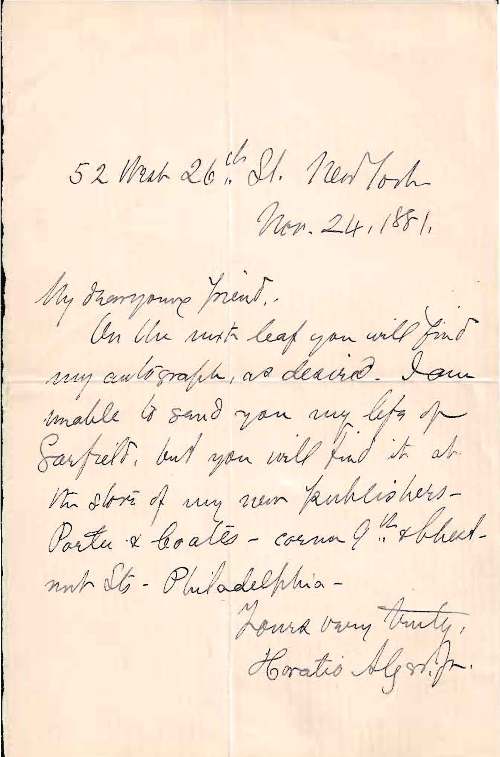 52 West 26th St. New York
Nov. 24, 1881.
My dear young friend,
On the next leaf you will find
my autograph, as desired. I am
unable to send you my life of
Garfield, but you will find it at
the store of my new publishers—
Porter & Coates — corner 9th & Chest-
nut Sts — Philadelphia —
Yours very truly,
Horatio Alger, Jr.